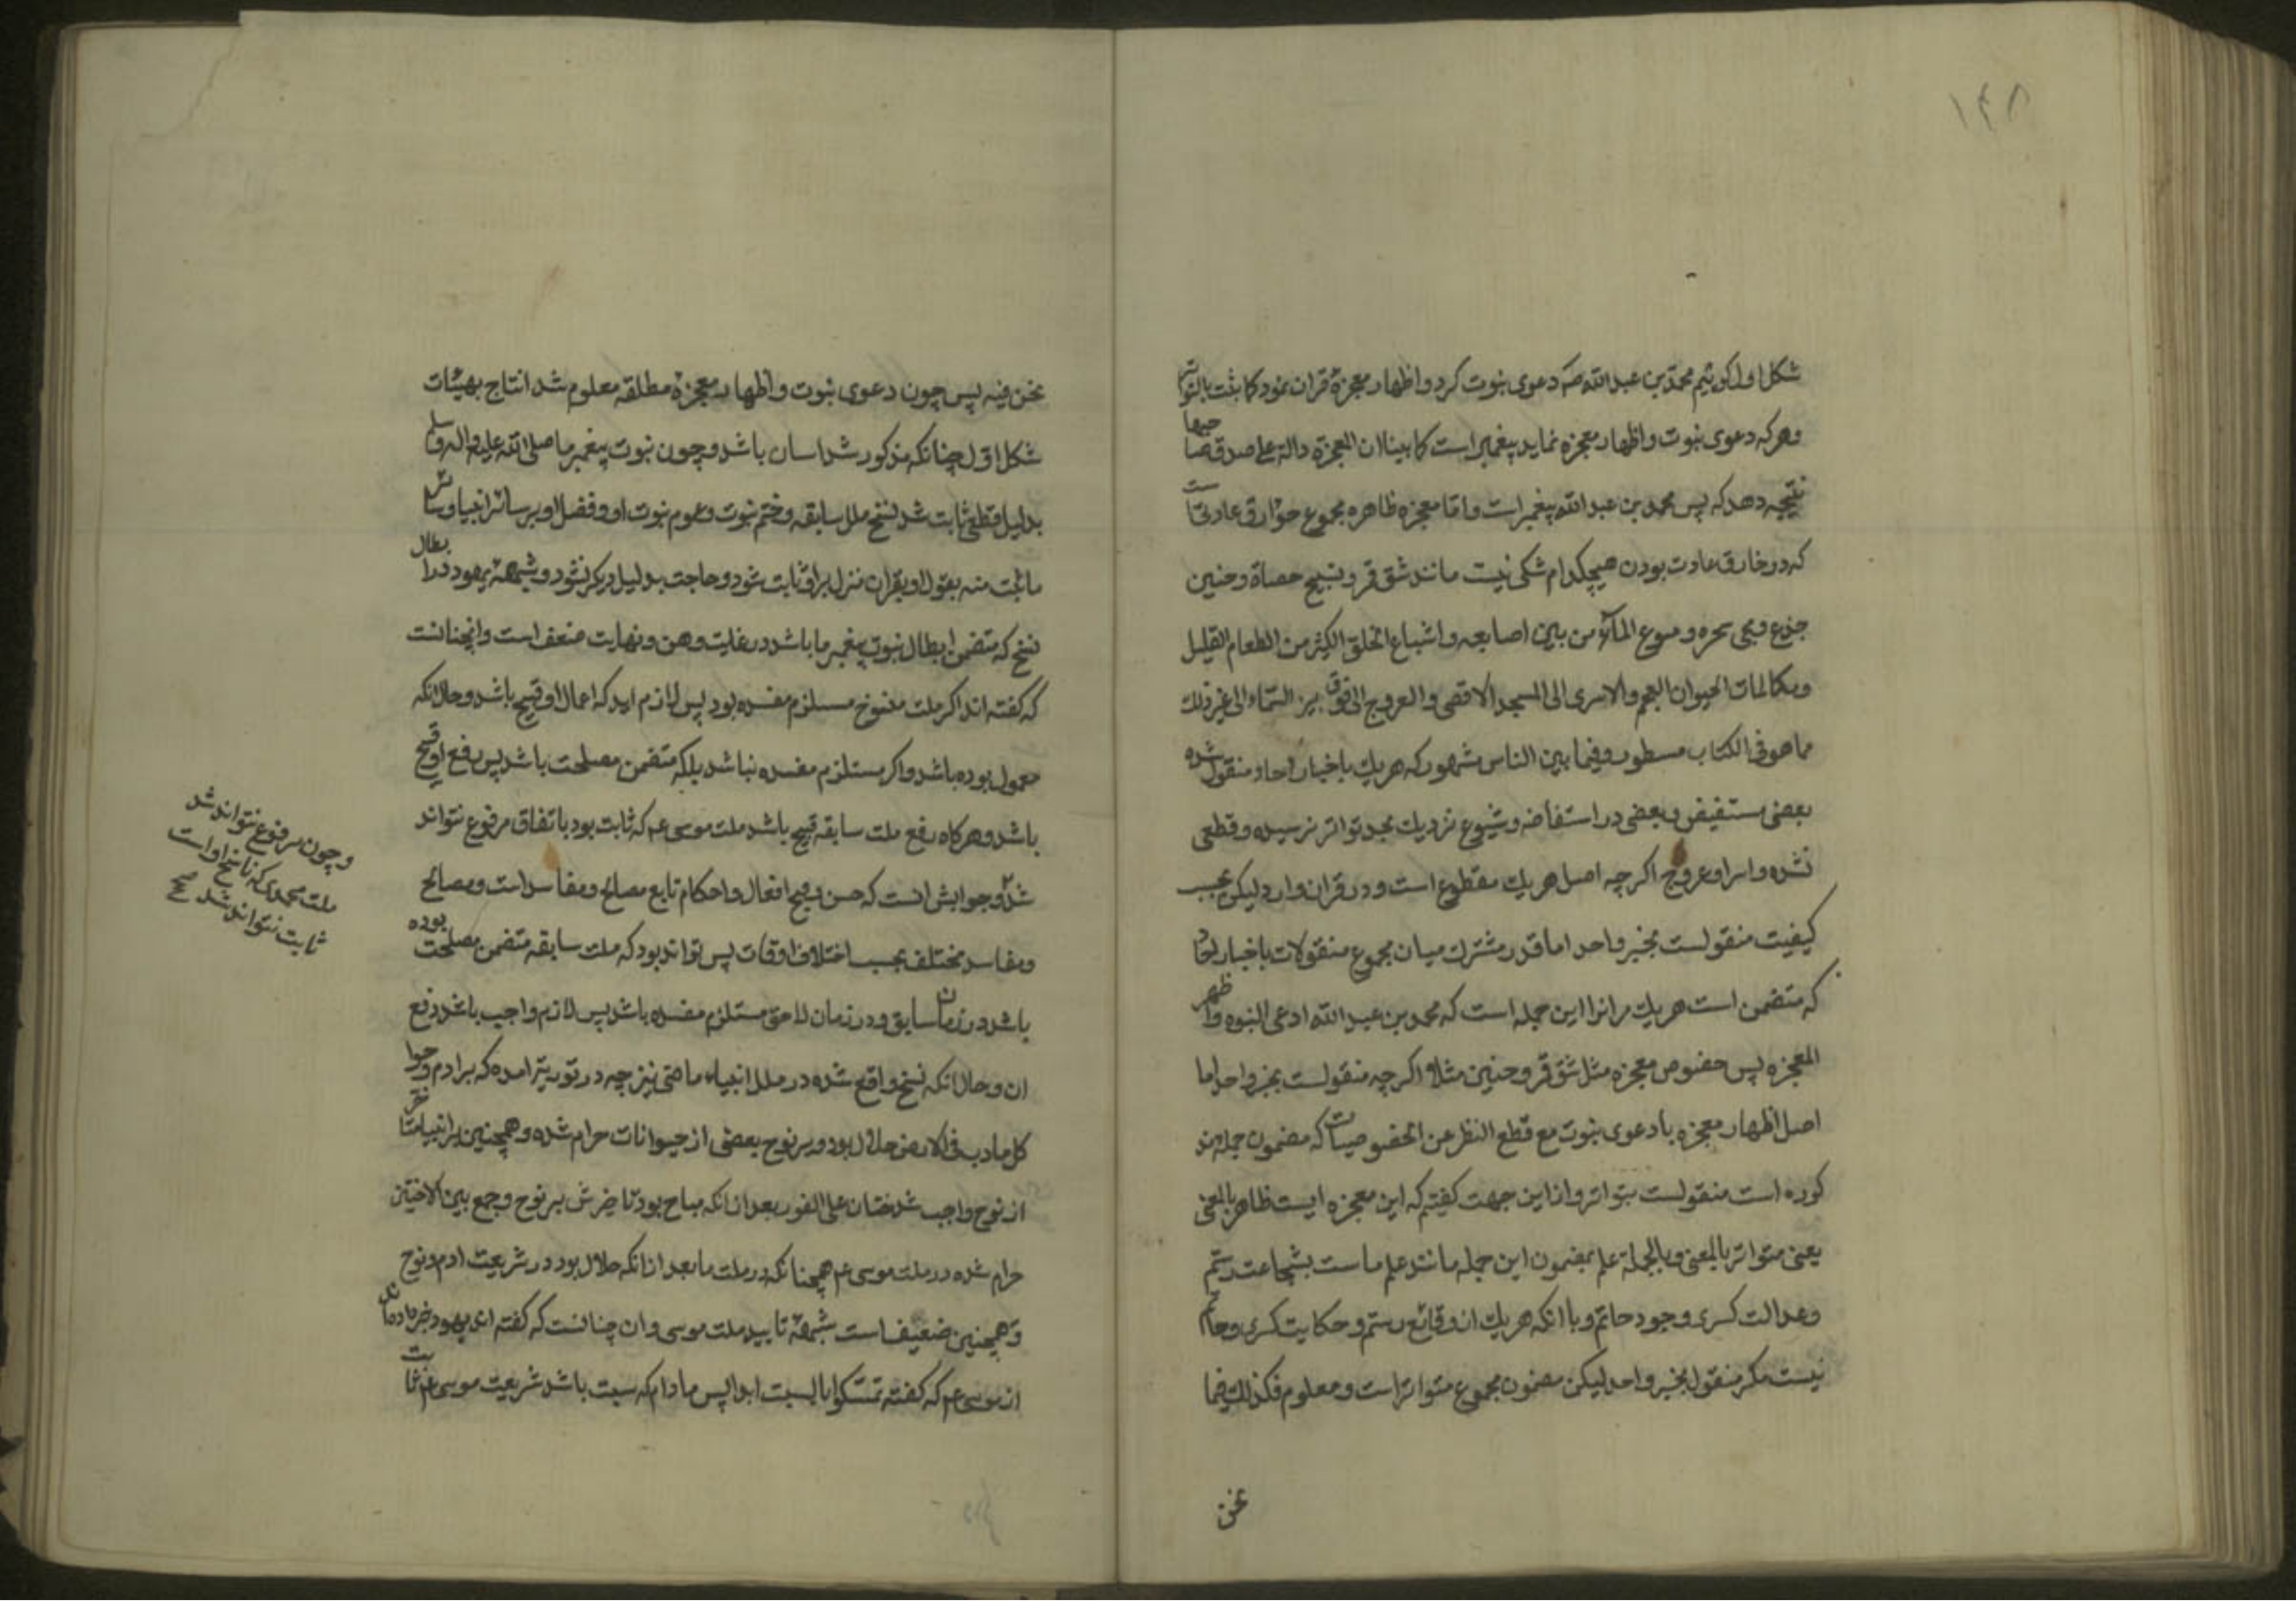 ۱۴۸
شکل اول کوئیم محمد بن عبدالله صم دعوی نبوت کرد و اظهار معجزهٔ قران نمود کما یثبت بالتواتر
وهرکه دعوی نبوت و اظهار معجزه نماید پیغمبر است کما بینا ان المعجزة دالة علی صدق صاحبها
نتیجه دهد که پس محمد بن عبدالله پیغمبر است و اما معجزه ظاهره مجموع خوارق عادتست
که در خارق عادت بودن هیچکدام شکی نیست مانند شق قمر و تسبیح حصاة و حنین
جذع و مجی شجره و نبوع المآء من بین اصابعه و اشباع الخلق الکثیر من الطعام القلیل
و مکالمات الحیوان العجم و الاسری الی المسجد الاقصی و العروج الی فوق السماء الی غیر ذلک
مما هو فی الکتاب مسطور و فیما بین الناس مشهور که هریک باخبار احاد منقول شده
بعضی مستفیض و بعضی در استفاضه و شیوع نزدیک بحد تواتر نرسیده و قطعی
نشده و اسرا و عروج اکرچه اصل هریک مقطوع است و در قران وارد لیکن بحسب
کیفیت منقولست بخبر واحد اما قدر مشترک میان مجموع منقولات باخبار احاد
که متضمن است هریک مرانرا این جمله است که محمد بن عبدالله ادعی النبوه و اظهر
المعجزه پس خصوص معجزه مثل شق قمر و حنین مثلا اکرچه منقولست بخبر واحد اما
اصل اظهار معجزه با دعوی نبوت مع قطع النظر عن الخصوصیات که مضمون جمله مذ
کوره است منقولست بتواتر و ازاین جهت کفتیم که این معجزه ایست ظاهر بالمعنی
یعنی متواتر بالمعنی و بالجملة علم بمضمون این جمله مانند علم ماست بشجاعت رستم
و عدالت کسری و جود حاتم و با انکه هریک از وقائع رستم و حکایت کسری و حاتم
نیست مکر منقول بخبر واحد لیکن مضمون مجموع متواتر است و معلوم فکذلک فیما
نحن
نحن فیه پس چون دعوی نبوت و اظهار معجزهٔ مطلقه معلوم شد انتاج بهیئات
شکل اول چنانکه مذکور شد اسان باشد و چون نبوت پیغمبر ما صلی الله علیه و اله وسلم
بدلیل قطعی ثابت شد نسخ ملل سابقه و ختم نبوت و عموم نبوت او و فضل او بر سائر انبیا و سائر
ما ثبت منه بقول او بقران منزل براو ثابت شود و حاجت بدلیل دیکر نشود و شبههٔ یهود در ابطال
نسخ که متضمن ابطال نبوت پیغمبر ما باشد در غایت وهن و نهایت ضعف است و انچنانست
که کفته اند اکر ملت منسوخ مستلزم مفسده بود پس لازم اید که اعمال او قبیح باشد و حال انکه
معمول بوده باشد و اکر مستلزم مفسده نباشد بلکه متضمن مصلحت باشد پس رفع او قبیح
باشد و هرکاه رفع ملت سابقه قبیح باشد ملت موسی عم که ثابت بود باتفاق مرفوع نتواند
شد و جوابش انست که حسن و قبح افعال و احکام تابع مصالح و مفاسد است و مصالح
و مفاسد مختلف بحسب اختلاف اوقات پس تواند بود که ملت سابقه متضمن مصلحت بوده
باشد در زمان سابق و در زمان لاحق مستلزم مفسده باشد پس لازم و واجب باشد رفع
ان و حال انکه نسخ واقع شده در ملل انبیاء ماضی نیز چه در توریة امده که بر ادم و حوا
کل ما دب فی الارض حلال بود و بر نوح بعضی از حیوانات حرام شده و همچنین بر انبیا متاخر
از نوح واجب شد ختان علی الفور بعد از انکه مباح بود تاخیرش بر نوح و جمع بین الاختین
حرام شده در ملت موسی عم همچنانکه در ملت ما بعد از انکه حلال بود در شریعت ادم و نوح
و همچنین ضعیف است شبههٔ تابید ملت موسی و ان چنانست که کفته اند یهود خبر داده اند
از موسی عم که کفته تمسکوا بالسبت ابدا پس مادام که سبت باشد شریعت موسی عم ثابت
و چون مرفوع نتواند شد
ملت محمد که ناسخ او است
ثابت نتواند شد صح